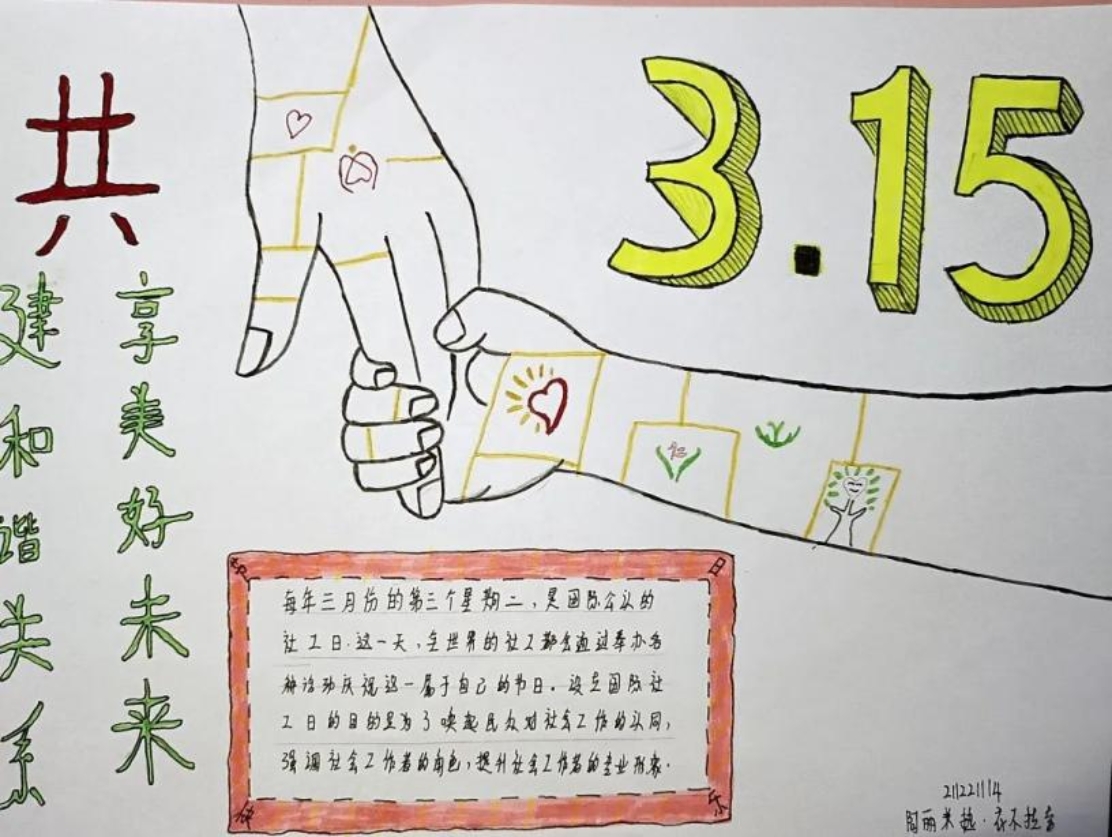 3.15
共
建和谐关系
享美好未来
节日
快乐
每年三月份的第三个星期二，是国际公认的
社工日.这一天，全世界的社工都会通过举办各
种活动庆祝这一属于自己的节日。设定国际社
工日的目的是为了唤起民众对社会工作的认同，
强调社会工作者的角色，提升社会工作者的专业形象.
211221114
阿丽米热·